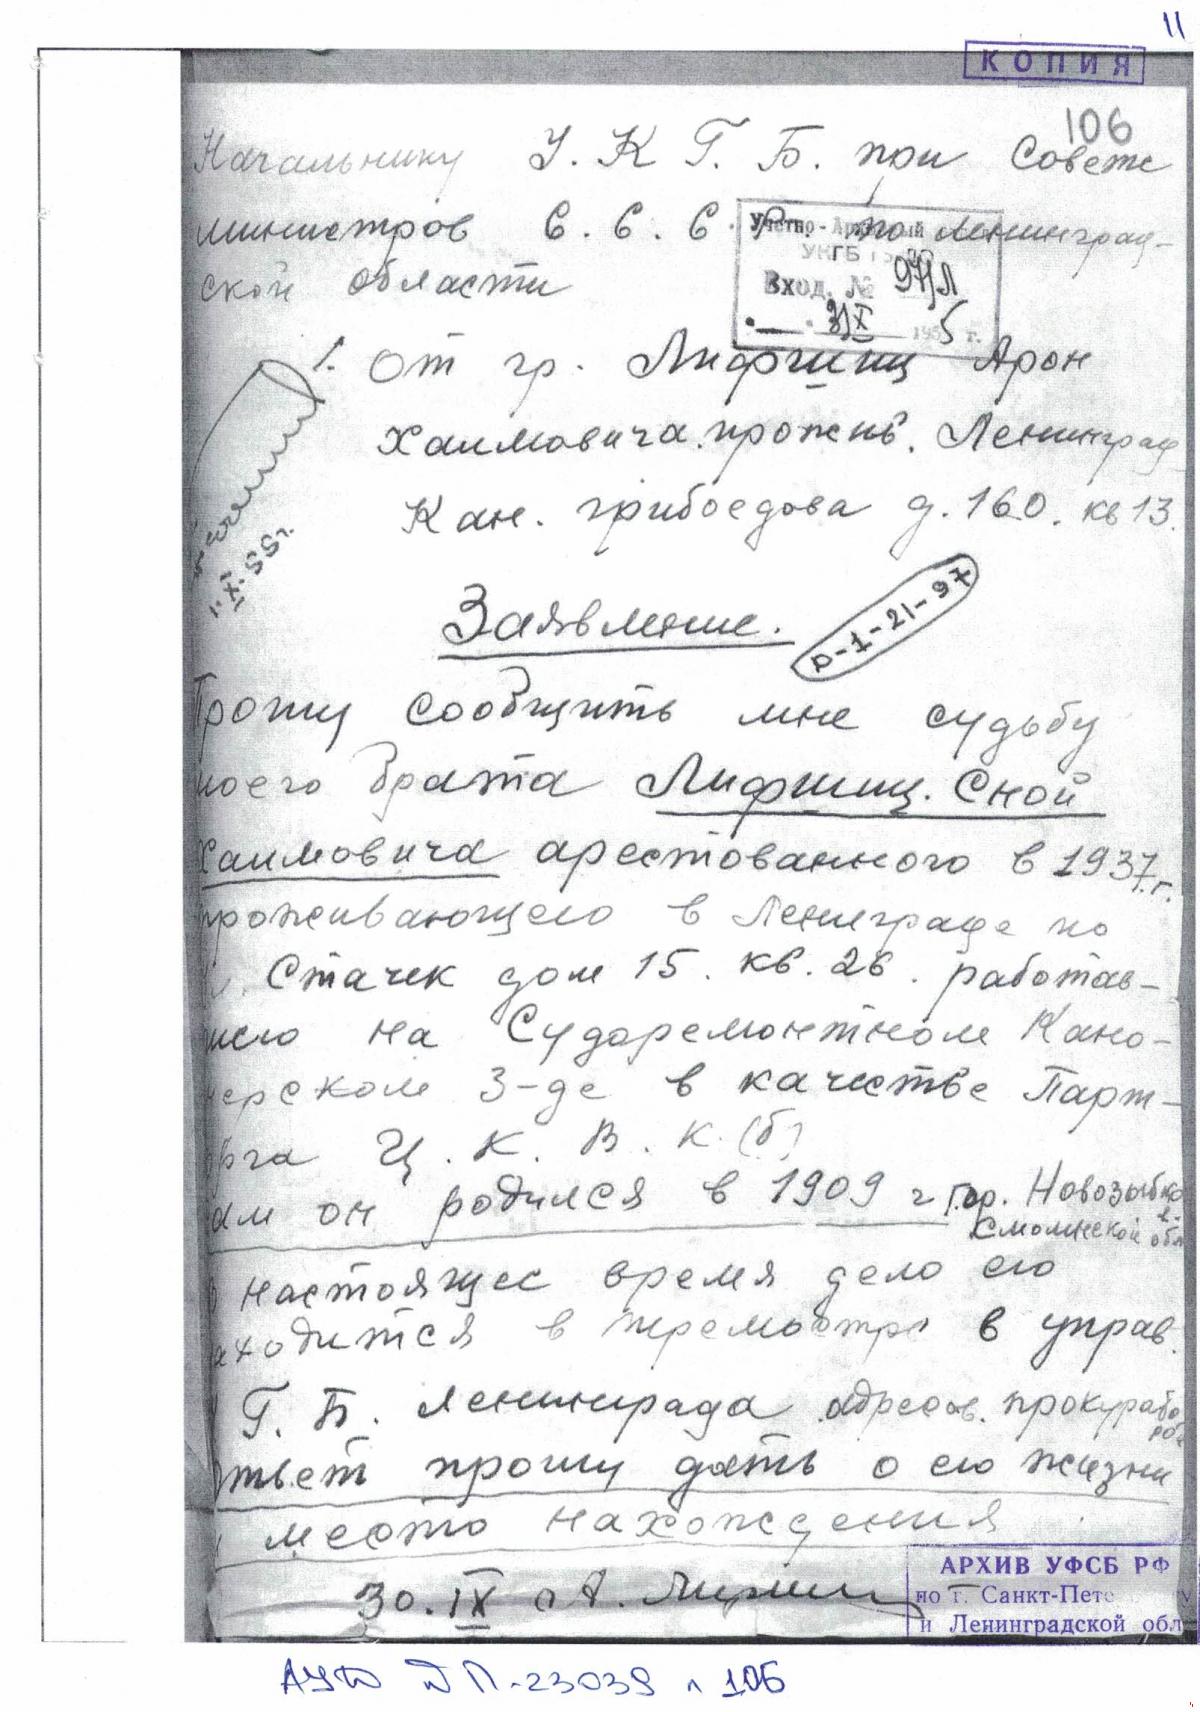 11
КОПИЯ
106
Начальнику У. К Г. Б. при Совете
министров С. С. С. Р. по Ленинград-
ской области
Учетно-Архивный
УКГБ
Вход. №
31 X 1955 г.
От гр. Лифшиц Арон
Хаимовича. прожив. Ленинград
Кан. грибоедова д. 160. кв 13.
1. XI. 55 г.
Заявление.
р-1-21-97
Прошу сообщить мне судьбу
моего брата Лифшиц. Сной
Хаимовича арестованного в 1937.г.
проживающего в Ленинграде по
Стачек дом 15. кв. 26. работав-
шего на Судоремонтном Кано-
нерском 3-де в качестве Парт-
орга Ц. К. В. К. (б)
сам он родился в 1909 г гор. Новозыбко
Смоленской обл
в настоящее время дело его
находится в пересмотре в управ.
Г. Б. Ленинграда адресов. прокурабо
Ответ прошу дать о его жизни
и место нахождения
30. IX А. Лифшиц
АРХИВ УФСБ РФ
по г. Санкт-Пете
и Ленинградской обл
АУФ П-23039 л 106